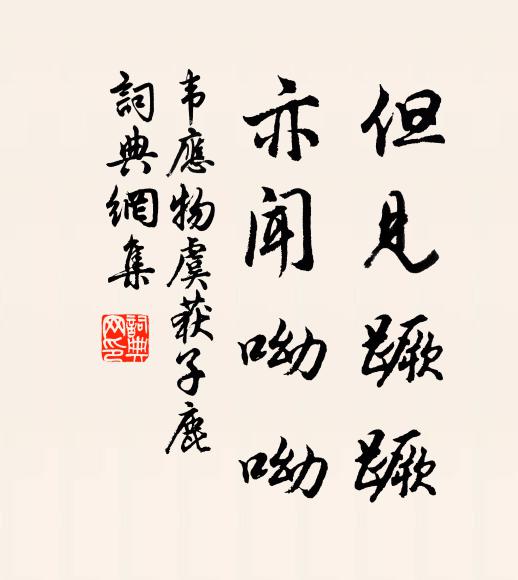 但见蹶蹶
亦闻呦呦
韦應物虞获子鹿
詞典網集
詞典网印